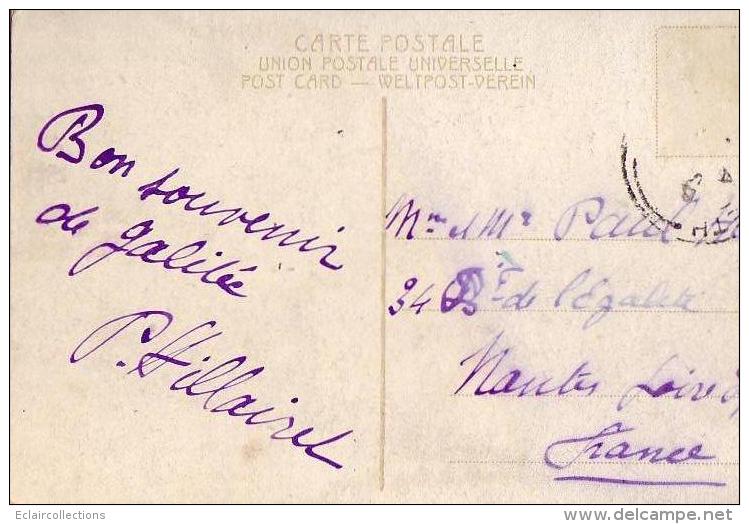 CARTE POSTALE
UNION POSTALE UNIVERSELLE
POST CARD — WELTPOST-VEREIN
Bon souvenir
de galilée
P. Hillairet
Mme & Mr Paul
34 Bd de l'Egalité
Nantes Loire
France
Eclaircollections
www.delcampe.net